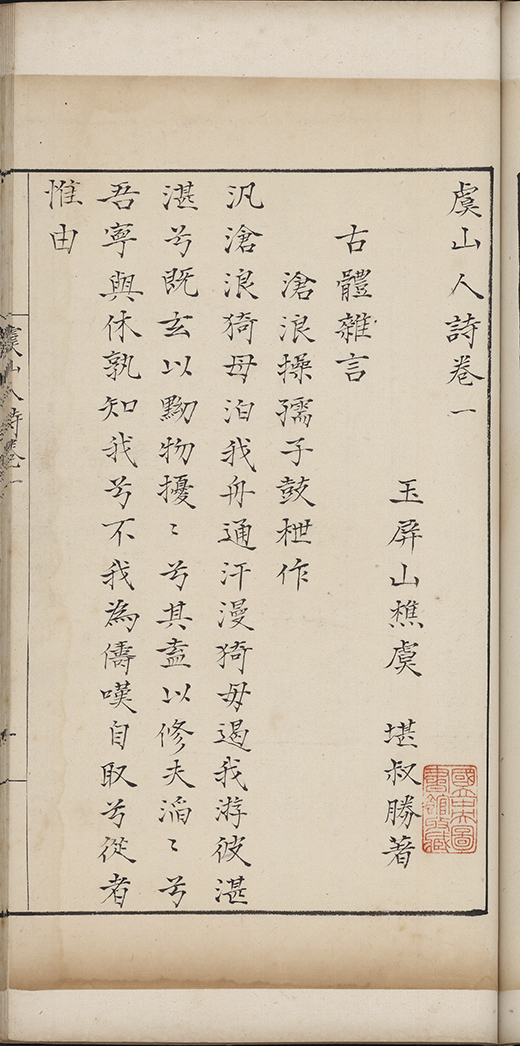 虞山人詩卷一
玉屏山樵虞 堪叔勝著
古體雜言
滄浪操孺子鼓枻作
汎滄浪猗母泊我舟通汗漫猗毋遏我游彼湛
湛兮既玄以黝物擾〻兮其盍以修夫滔〻兮
吾寧與休孰知我兮不我為儔嘆自取兮從者
惟由
虞山人詩卷一
國立北平圖書館收藏